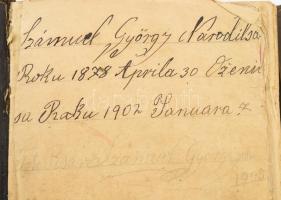 Sámuel György Narodil sa
Roku 1878 Aprila 30 Oženil
sa Roku 1902 Januara 7
György